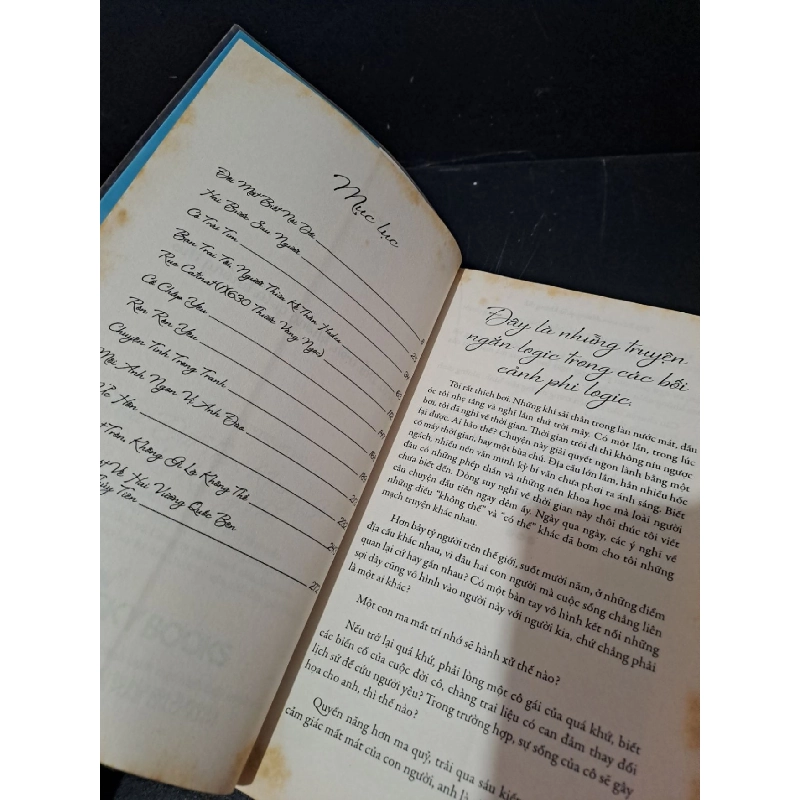 Mục lục
Đôi Mắt Biết Nói Dối
Hai Bước Sau Người
Cô Trái Tim
Bạn Trai Tôi, Người Thừa Kế Thần Hades
Rùa Catnat(X630 Thước Vàng Ngọc)
Cá Chép Yêu
Rắn Rắn Yêu
Chuyện Tình Trong Tranh
Môi Anh Ngon Vị Anh Đào
Hận
Trốn, Không Gì Là Không Thể
Về Hai Vương Quốc Bên
Tiên
Đây là những truyện
ngắn logic trong các bối
cảnh phi logic.
Tôi rất thích bơi. Những khi sải thân trong làn nước mát, đầu
óc tôi nhẹ tâng và nghĩ lắm thứ trời mây. Có một lần, trong lúc
bơi, tôi đã nghĩ về thời gian. Thời gian trôi đi thì không níu ngược
lại được. Ai bảo thế? Chuyện này giải quyết ngon lành bằng một
cỗ máy thời gian, hay một bùa chú. Địa cầu lớn lắm, hẳn nhiều hốc
ngách, nhiều tiền văn minh kỳ bí vẫn chưa phơi ra ánh sáng. Biết
đâu có những phép thần và những nền khoa học mà loài người
chưa biết đến. Dòng suy nghĩ về thời gian này thôi thúc tôi viết
câu chuyện đầu tiên ngay đêm ấy. Ngày qua ngày, các ý nghĩ về
những điều "không thể" và "có thể" khác đã bơm cho tôi những
mạch truyện khác nhau.
Hơn bảy tỷ người trên thế giới, suốt mười năm, ở những điểm
địa cầu khác nhau, vì đâu hai con người mà cuộc sống chẳng liên
quan lại cứ hay gần nhau? Có một bàn tay vô hình kết nối những
sợi dây cũng vô hình vào người này với người kia, chứ chẳng phải
là một ai khác?
Một con ma mất trí nhớ sẽ hành xử thế nào?
Nếu trở lại quá khứ, phải lòng một cô gái của quá khứ, biết
các biến cố của cuộc đời cô, chàng trai liệu có can đảm thay đổi
lịch sử để cứu người yêu? Trong trường hợp, sự sống của cô sẽ gây
họa cho anh, thì thế nào?
Quyền năng hơn ma quỷ, trải qua sáu kiếp
cảm giác mất mát của con người, anh là